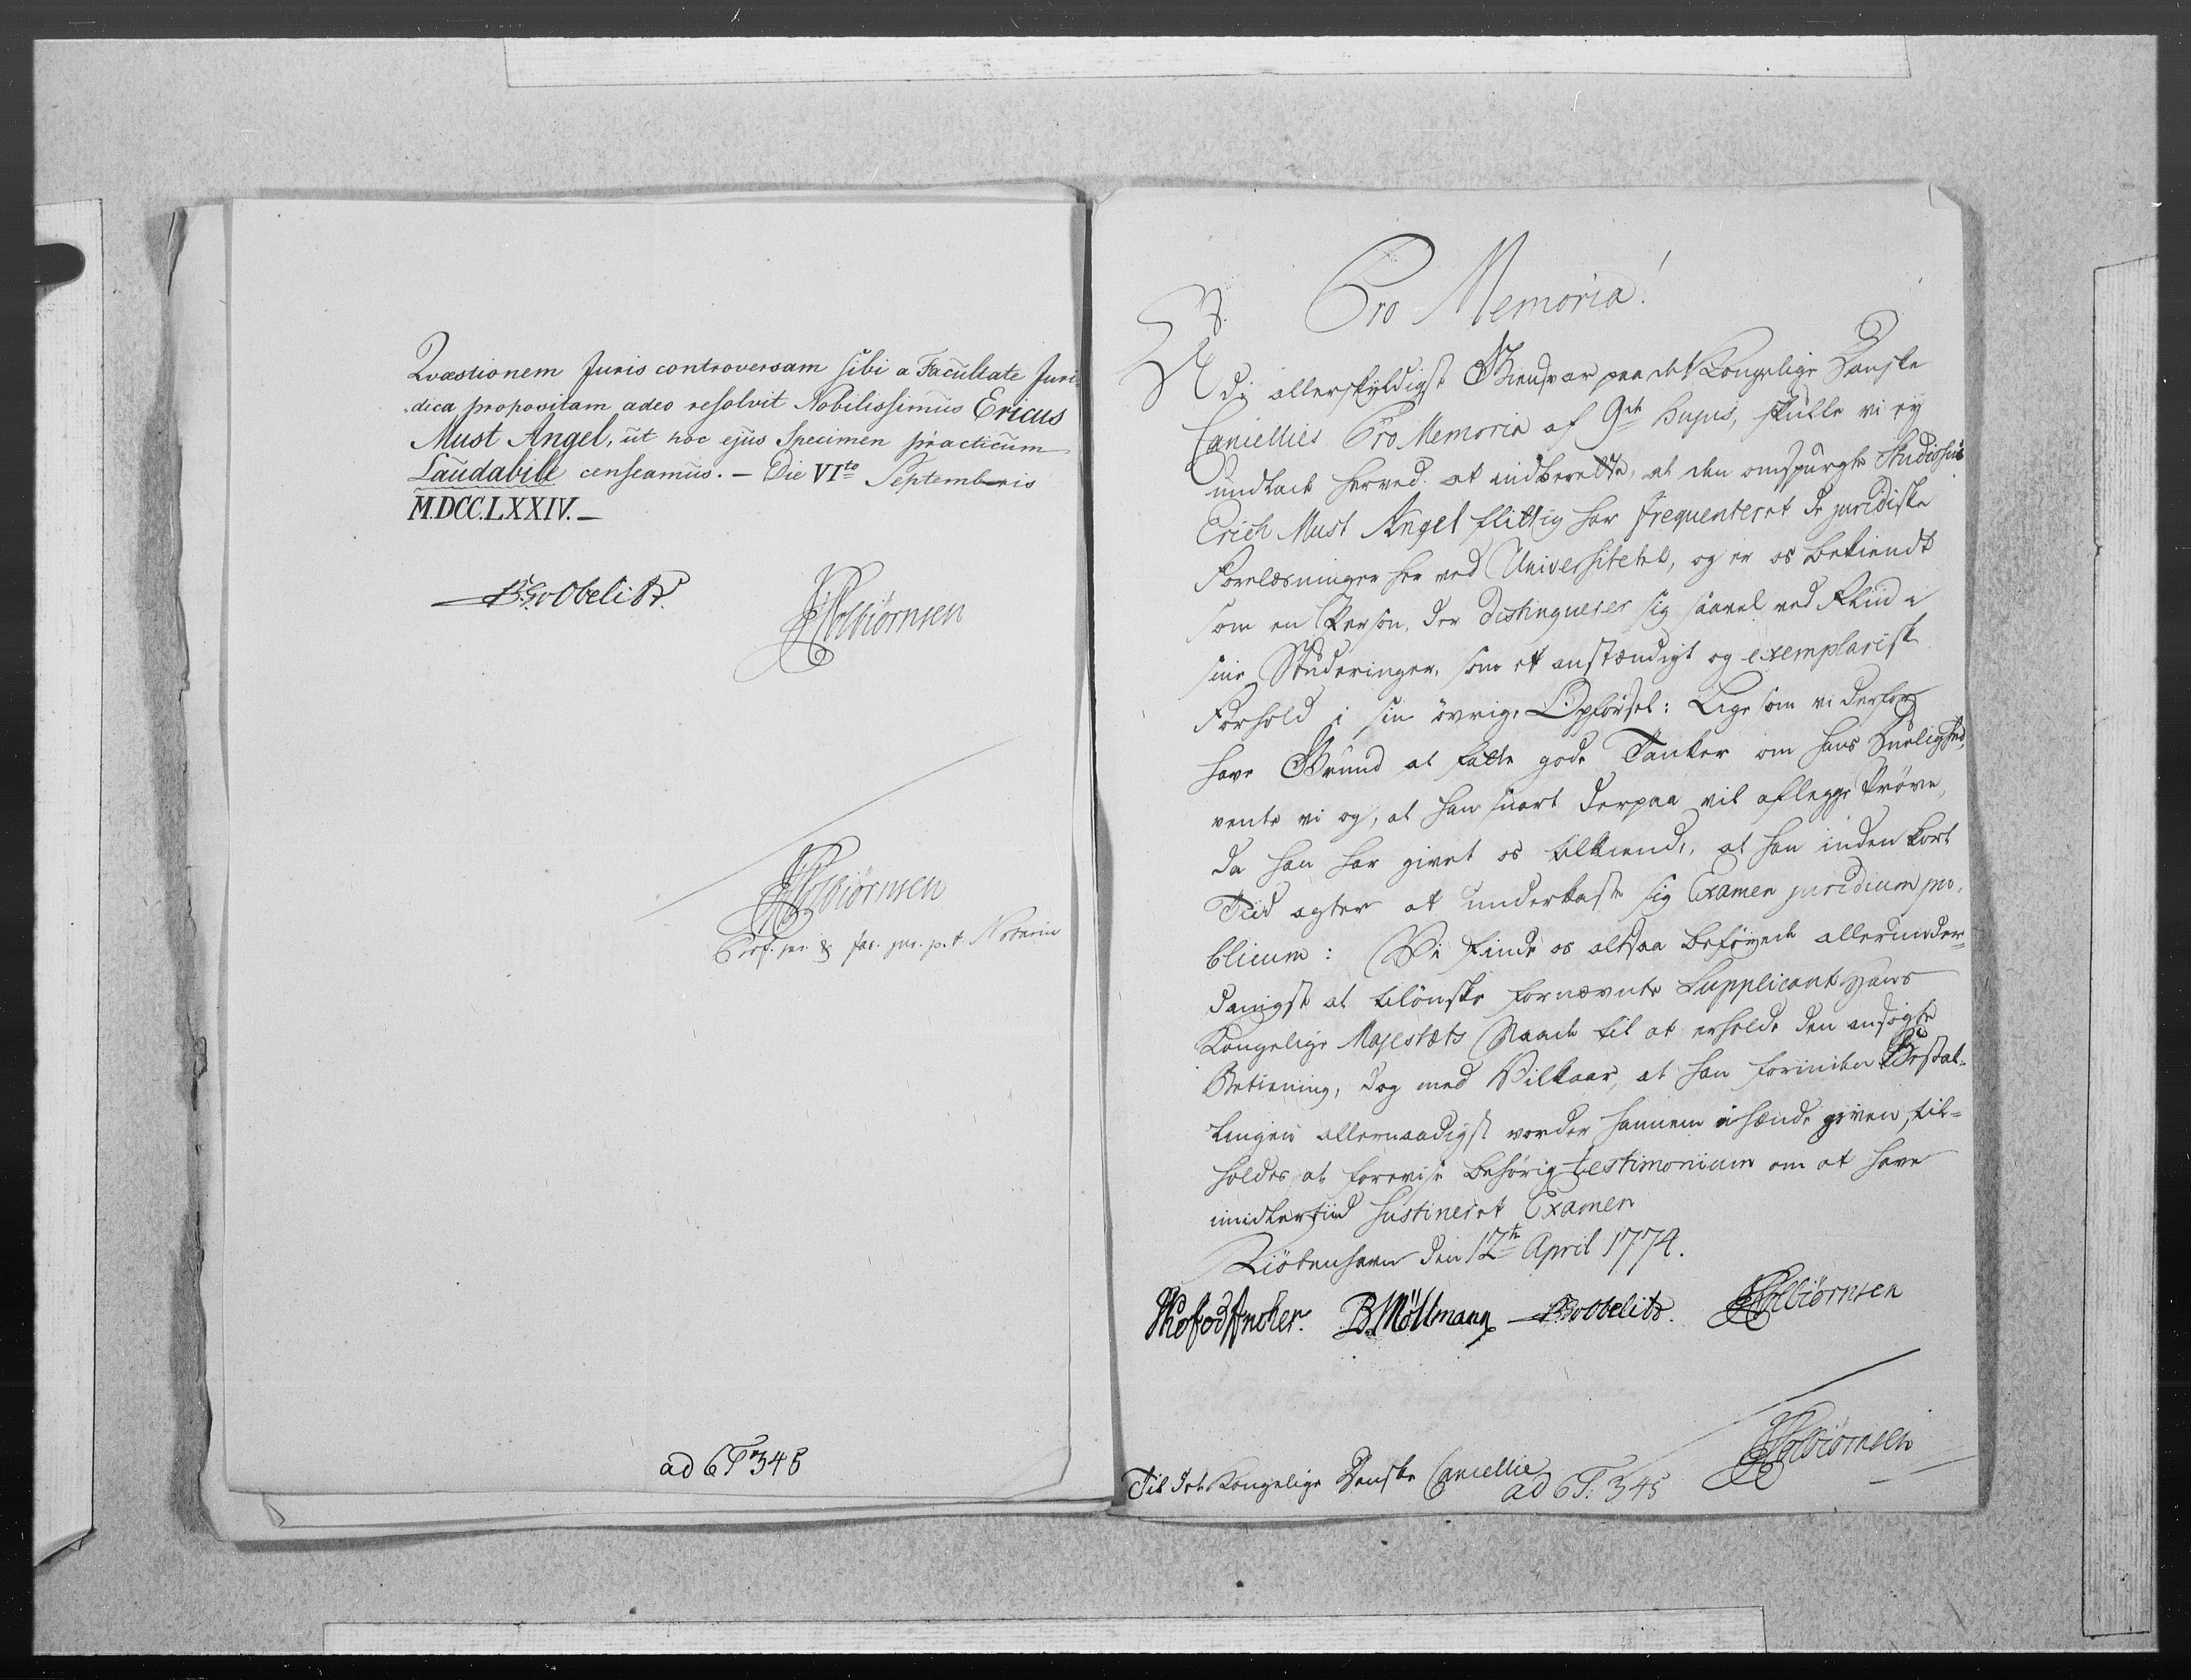 Qvæstionem Juris controversam sibi a Facultate Juri-
dica propositam adeo resolvit Nobilissimus Ericus
Must Angel, ut hoc ejus Specimen practicum
Laudabile censeamus. — Die VIto Septembris
M.DCC.LXXIV. —
B. G. Obelitz.
Colbiørnsen
Colbiørnsen
Prof. jur. & fac. jur. p. t. Notarius
ad 6 T 345
Pro Memoria!
Udi allerskyldigst Giensvar paa det Kongelige Danske
Cancellies Pro Memoria af 9de hujus, skulle vi ey
undlade herved at indberette, at den omspurgte Studiosus
Erich Must Angel flittig har frequenteret de juridiske
Forelæsninger her ved Universitetet, og er os bekiendt
som en Person, der distingverer sig saavel ved Fliid i
sine Studeringer, som et anstændigt og exemplarisk
Forhold i sin övrige Opförsel: Lige som vi derfor
have Grund at fatte gode Tanker om hans Duelighed,
vente vi og, at han snart derpaa vil aflegge Pröve,
da han har givet os tilkiende, at han inden kort
Tiid agter at underkaste sig Examen juridicum pu-
blicum: Vi finde os altsaa beföyede allerunder-
danigst at tilönske fornævnte Supplicant Hans
Kongelige Majestæts Naade til at erholde den ansögte
Betiening, dog med Vilkaar, at han forinden Bestal-
lingen allernaadigst vorder hannem i hænde given, til-
holdes at forevise behörig testimonium om at have
imidlertiid sustineret Examen
Kiöbenhavn den 12te April 1774.
Kofod Ancher. B. Möllmann B. G. Obelitz. Colbiørnsen
Colbiørnsen
Til det Kongelige Danske Cancellie
ad 6 T: 345